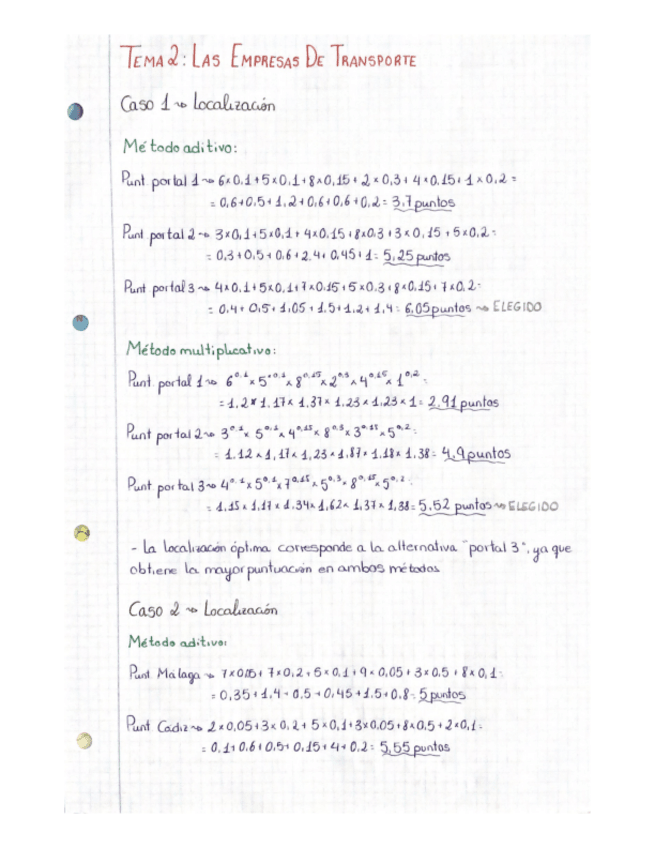 TEMA 2: LAS EMPRESAS DE TRANSPORTE
Caso 1 ⇝ Localización
Método aditivo:
Punt portal 1 ⇝ 6×0,1+5×0,1+8×0,15+2×0,3+4×0,15+1×0,2=
= 0,6+0,5+1,2+0,6+0,6+0,2= 3,7 puntos
Punt portal 2 ⇝ 3×0,1+5×0,1+4×0,15+8×0,3+3×0,15+5×0,2=
= 0,3+0,5+0,6+2,4+0,45+1= 5,25 puntos
Punt portal 3 ⇝ 4×0,1+5×0,1+7×0,15+5×0,3+8×0,15+7×0,2=
= 0,4+0,5+1,05+1,5+1,2+1,4= 6,05 puntos ⇝ ELEGIDO
Método multiplicativo:
Punt portal 1 ⇝ 6^0,1 × 5^0,1 × 8^0,15 × 2^0,3 × 4^0,15 × 1^0,2 =
= 1,2 × 1,17 × 1,37 × 1,23 × 1,23 × 1 = 2,91 puntos
Punt portal 2 ⇝ 3^0,1 × 5^0,1 × 4^0,15 × 8^0,3 × 3^0,15 × 5^0,2 =
= 1,12 × 1,17 × 1,23 × 1,87 × 1,18 × 1,38 = 4,9 puntos
Punt portal 3 ⇝ 4^0,1 × 5^0,1 × 7^0,15 × 5^0,3 × 8^0,15 × 5^0,2 =
= 1,15 × 1,17 × 1,34 × 1,62 × 1,37 × 1,38 = 5,52 puntos ⇝ ELEGIDO
- La localización óptima corresponde a la alternativa "portal 3", ya que
obtiene la mayor puntuación en ambos métodos
Caso 2 ⇝ Localización
Método aditivo:
Punt Málaga ⇝ 7×0,05+7×0,2+5×0,1+9×0,05+3×0,5+8×0,1=
= 0,35+1,4+0,5+0,45+1,5+0,8= 5 puntos
Punt Cádiz ⇝ 2×0,05+3×0,2+5×0,1+3×0,05+8×0,5+2×0,1=
= 0,1+0,6+0,5+0,15+4+0,2= 5,55 puntos